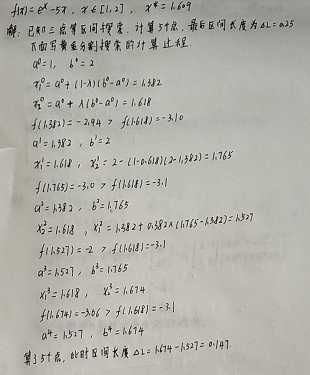 f(x)= eˣ-5x, x∈[1,2], x*=1.609
解: 已知三点等区间搜索, 计算5个点, 最后区间长度为 ΔL=0.25
下面写黄金分割搜索的计算过程.
a⁰=1, b⁰=2
x₁⁰=a⁰+(1-λ)(b⁰-a⁰)=1.382
x₂⁰=a⁰+λ(b⁰-a⁰)=1.618
f(1.382)=-2.94 > f(1.618)=-3.10
a¹=1.382, b¹=2
x₁¹=1.618, x₂¹=2-(1-0.618)(2-1.382)=1.765
f(1.765)=-3.0 > f(1.618)=-3.1
a²=1.382, b²=1.765
x₂²=1.618, x₁²=1.382+0.382×(1.765-1.382)=1.527
f(1.527)=-2 > f(1.618)=-3.1
a³=1.527, b³=1.765
x₁³=1.618, x₂³=1.674
f(1.674)=-3.06 > f(1.618)=-3.1
a⁴=1.527, b⁴=1.674
算了5个点, 此时区间长度 ΔL=1.674-1.527=0.147.